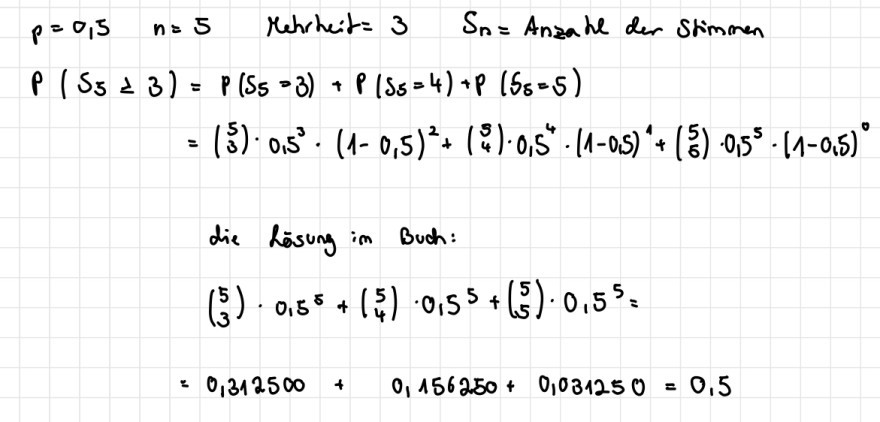 p = 0,5 n = 5 Mehrheit = 3 Sn = Anzahl der Stimmen
P ( S5 ≥ 3 ) = P (S5 = 3) + P (S5 = 4) + P (S5 = 5)
= (5 3) · 0,5³ · (1 - 0,5)² + (5 4) · 0,5⁴ · (1-0,5)¹ + (5 5) · 0,5⁵ · (1-0,5)⁰
die Lösung im Buch:
(5 3) · 0,5⁵ + (5 4) · 0,5⁵ + (5 5) · 0,5⁵ =
= 0,312500 + 0,156250 + 0,031250 = 0,5